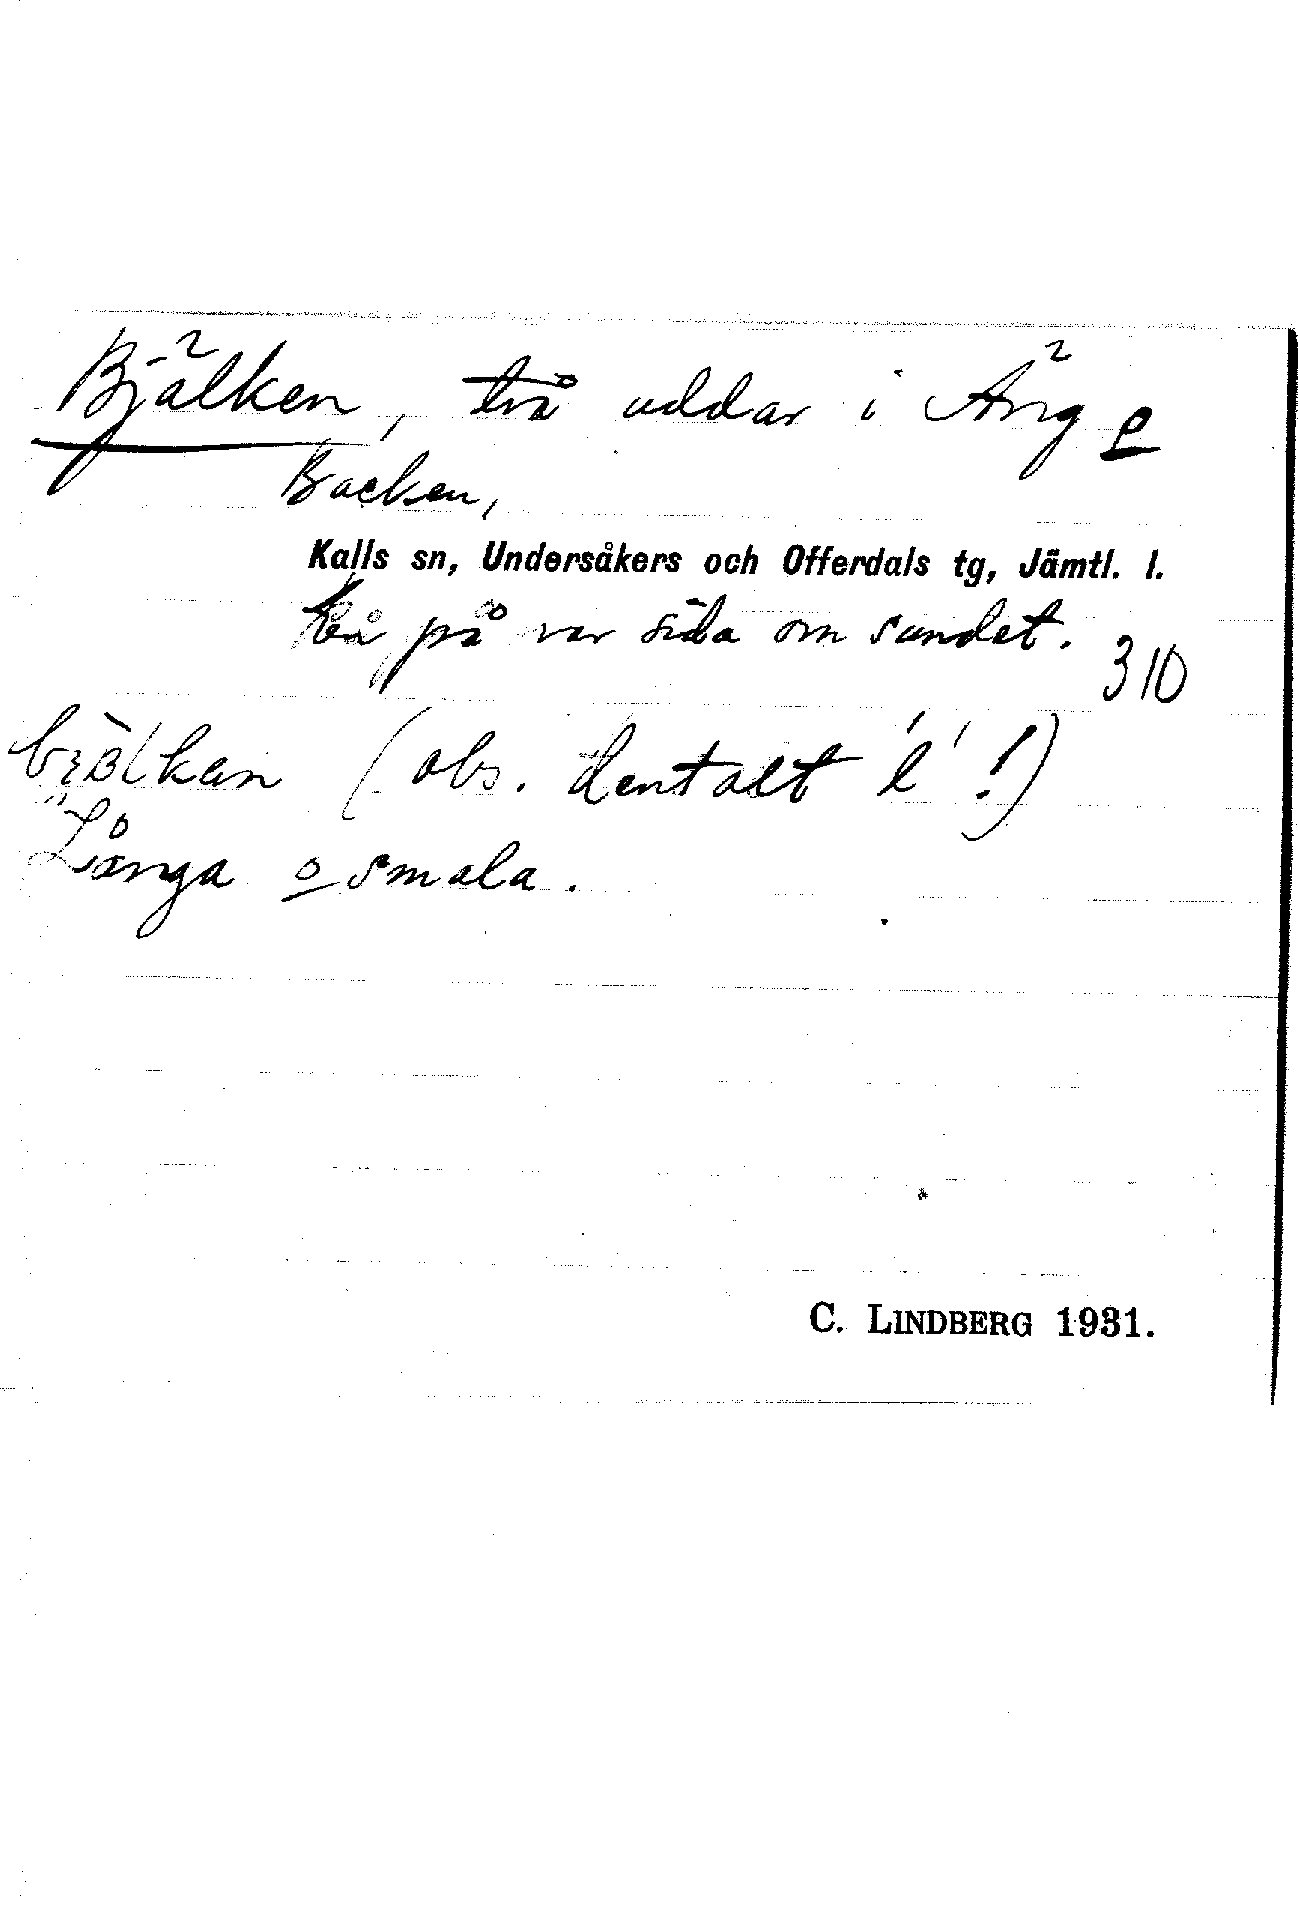 Bjälken, två uddar i Äng e
Backen,
Kalls sn, Undersåkers och Offerdals tg, Jämtl. l.
på var sida om sundet.
310
(obs. dentalt 'l'!)
"Långa o smala.
C. LINDBERG 1931.